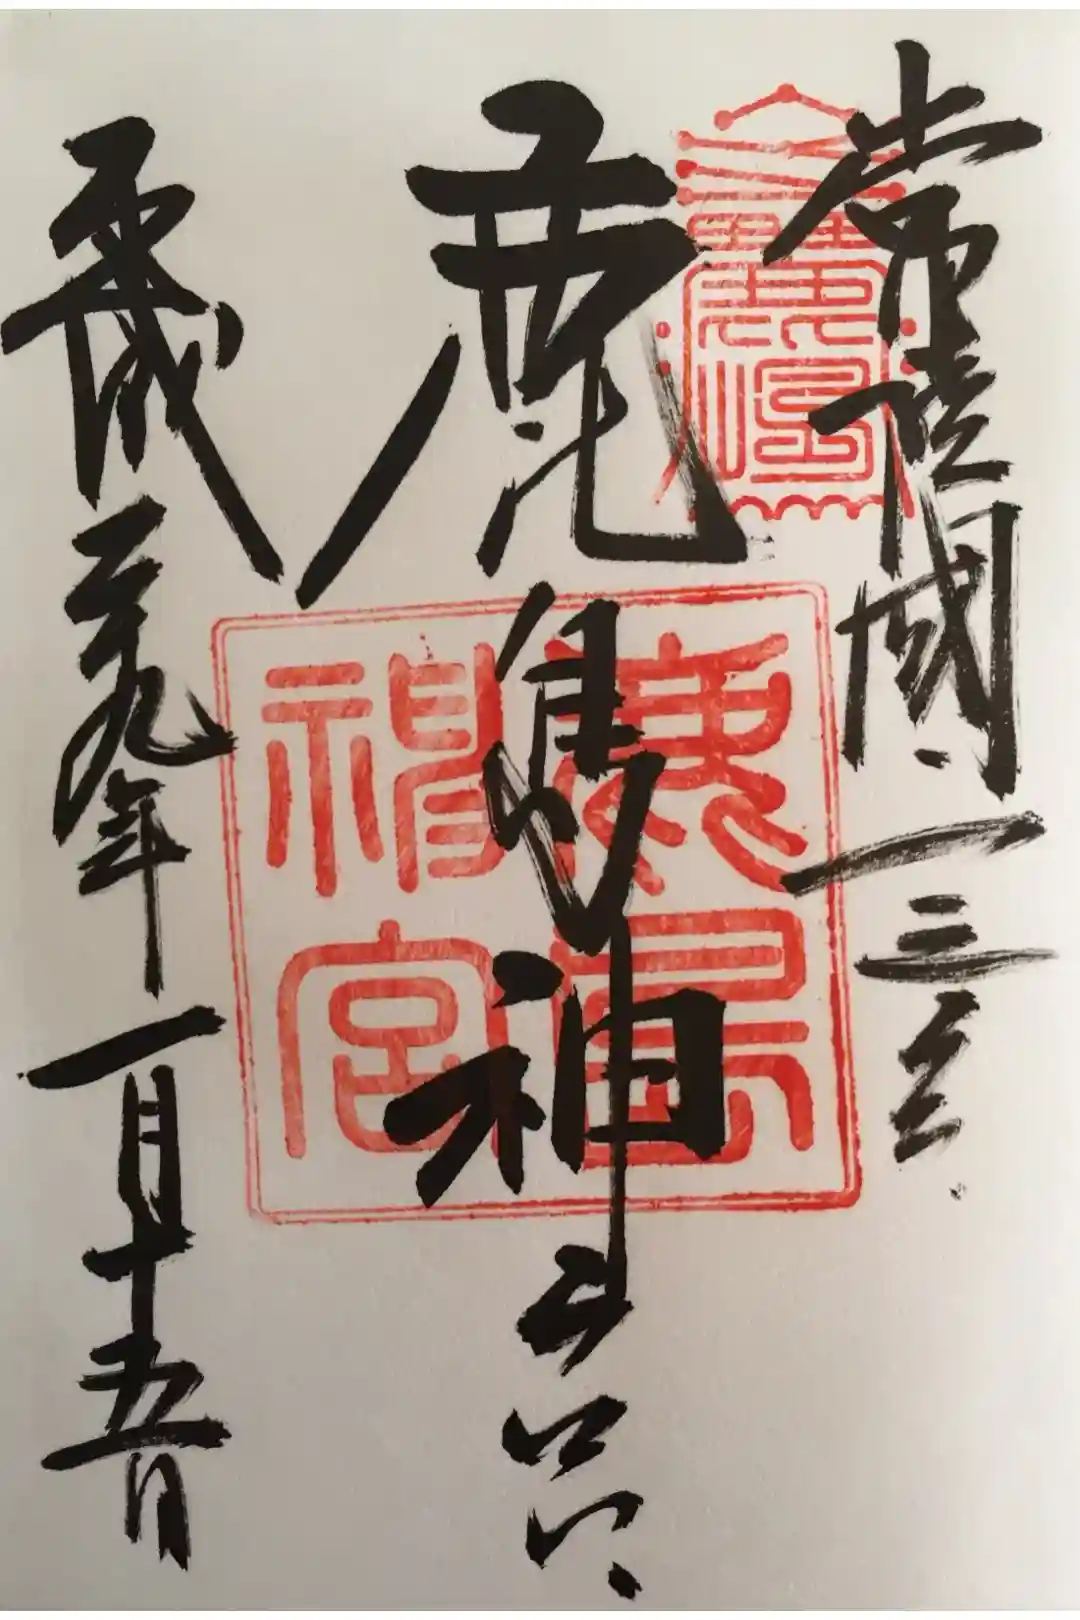 常陸國一三宮
鹿島神宮
平成二十九年一月十五日
鹿島神宮